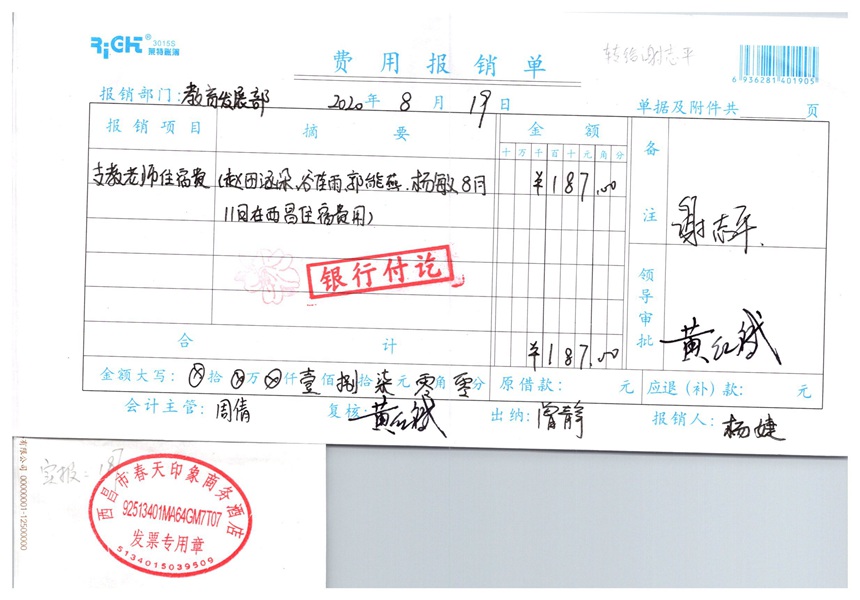 RiGHT® 3015S
莱特账簿
费用报销单
转给谢志平
6 936281 401905
报销部门:教育发展部 2020年8月19日 单据及附件共 页
报销项目 摘要 金额 备注
十万千百十元角分
支教老师住宿费 (赵田 谷佳雨、郭能燕、杨敏8月 ¥187.00
11日在西昌住宿费用) 谢志平.
银行付讫
领导审批 黄红斌
合计 ¥187.00
金额大写:ⓧ拾ⓧ万ⓧ仟壹佰捌拾柒元零角零分 原借款: 元 应退(补)款: 元
会计主管:周倩 复核:黄红斌 出纳:曾静 报销人:杨婕
有限公司 00000001-12500000
实报:187
西昌市春天印象商务酒店
92513401MA64GM7T07
发票专用章
5134015039509